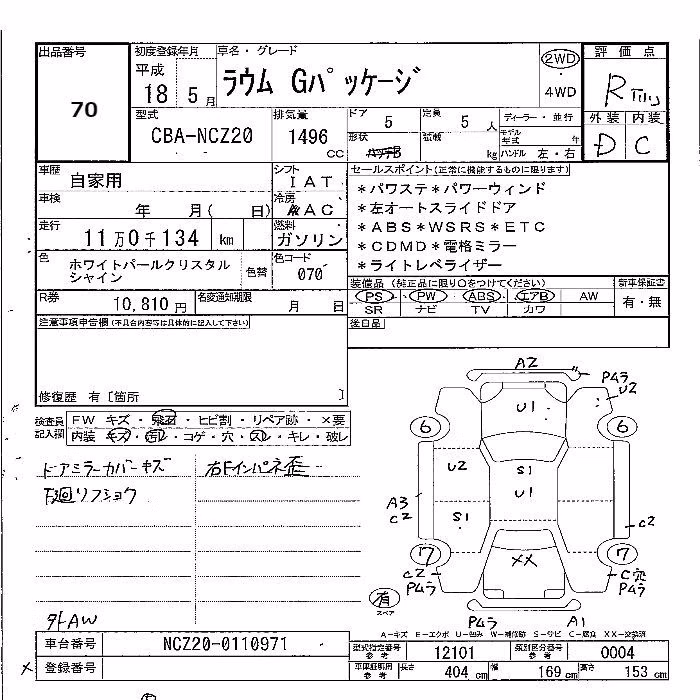 出品番号
70
初度登録年月
平成
18 5 月
車名・グレード
ラウム Gパッケージ
2WD
・
4WD
評価点
R
外装 内装
D C
型式
CBA-NCZ20
排気量
1496
CC
ドア
5
定員
5 人
形状
積載
kg
ディーラー・並行
モデル
年式 年
ハンドル 左・右
車歴
自家用
シフト
I A T
車検
年 月( 日)
冷房
A C
走行
11 万 0 千 134 km
燃料
ガソリン
色
ホワイトパールクリスタル
シャイン
色替
色コード
070
R券
10,810 円
名変通知期限
月 日
セールスポイント(正常に機能するものに限ります)
*パワステ*パワーウィンド
*左オートスライドドア
*ABS*WSRS*ETC
*CDMD*電格ミラー
*ライトレベライザー
装備品(純正品に限り○をつけてください)
PS・PW・ABS・エアB AW
SR ナビ TV カワ
新車保証書
有・無
後日品
注意事項申告欄(不具合内容等は具体的に記入して下さい)
修復歴 有〔箇所 〕
検査員
記入欄
FW キズ・飛石・ヒビ割・リペア跡・×要
内装 キズ・汚レ・コゲ・穴・スレ・キレ・破レ
ドアミラーカバーキズ
下廻リフショク
右Fインパネ歪
外AW
A2
P4ラ
U2
U1
6
6
U2
S1
U1
A3
C2
S1
C2
7
7
XX
C2
P4ラ
C穴
P4ラ
有
スペア
P4ラ
A1
A-キズ E-エクボ U-凹み W-補修跡 S-サビ C-腐食 XX-交換済
車台番号
NCZ20-0110971
登録番号
型式指定番号
参考
12101
類別区分番号
参考
0004
車庫証明用
参考
長さ 404 cm
幅 169 cm
高さ 153 cm